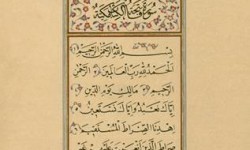 بسم الله الرحمن الرحيم
الحمد لله رب العالمين الرحمن
الرحيم مالك يوم الدين
اياك نعبد واياك نستعين
اهدنا الصراط المستقيم
صراط الذين انعمت عليهم غير